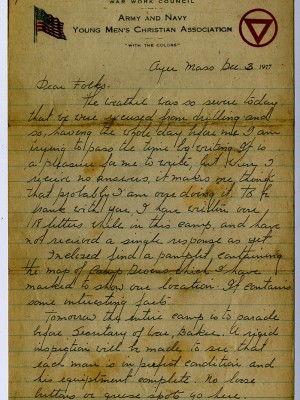 WAR WORK COUNCIL
ARMY AND NAVY
YOUNG MEN'S CHRISTIAN ASSOCIATION
"WITH THE COLORS"
Ayer Mass Dec. 3, 1917
Dear Folks,
The weather was so severe today
that we were excused from drilling and
so, having the whole day before me I am
trying to pass the time by writing. It is
a pleasure for me to write, but when I
receive no answers, it makes me think
that probably I am over doing it. To be
frank with you I have written over
18 letters while in this camp, and have
not received a single response as yet.
Inclosed find a pamphlet, containing
the map of Camp Devens which I have
marked to show our location. It contains
some interesting facts.
Tomorrow the entire camp is to parade
before Secretary of War, Baker. A rigid
inspection will be made to see that
each man is in perfect condition and
his equiptment complete. No loose
buttons or grease spots go here.